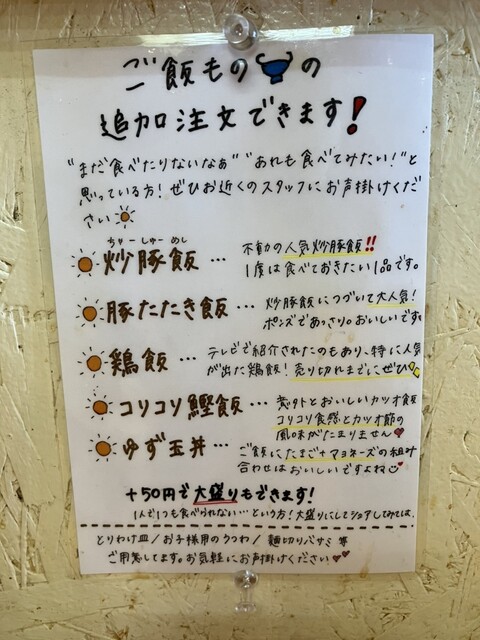 ご飯もの の
追加注文できます!
"まだ食べたりないなぁ" "あれも食べてみたい!"と
思っている方! ぜひお近くのスタッフにお声掛けくだ
さい
ちゃーしゅーめし
炒豚飯 … 不動の人気炒豚飯!!
1度は食べておきたい1品です。
豚たたき飯 … 炒豚飯につづいて大人気!
ポンズであっさり。おいしいです
鶏飯 … テレビで紹介されたのもあり、特に人気
が出た鶏飯! 売り切れまでにぜひ
コリコリ鰹飯 … 煮タトとおいしいカツオ飯
コリコリ食感とカツオ節の
風味がたまりません
ゆず玉丼 … ご飯にたまご+マヨネーズの組み
合わせはおいしいですよね
+50円で大盛りもできます!
1人で1つも食べられない…という方! 大盛りにしてシェアしてみては、
とりわけ皿/お子様用のうつわ/麺切りバサミ 等
ご用意してます。お気軽にお声掛けください